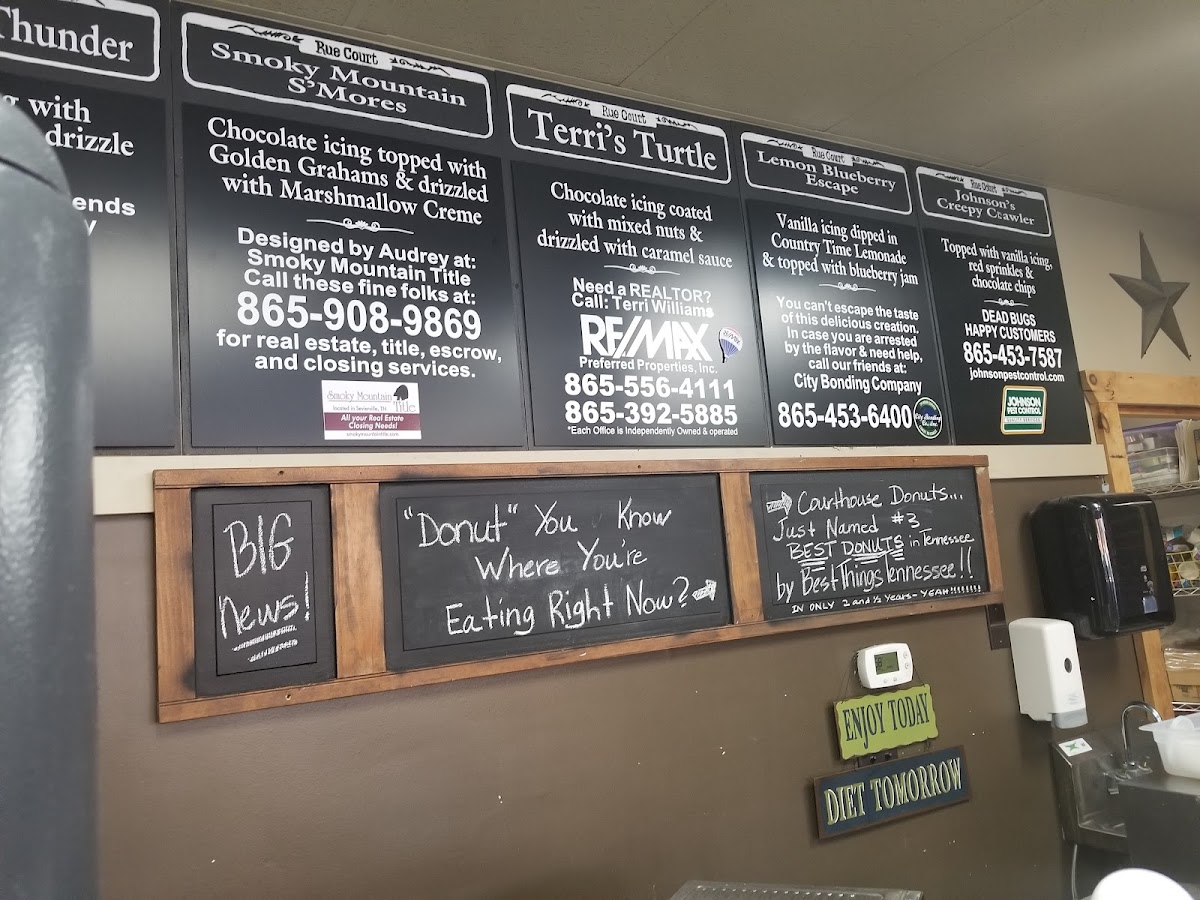 Thunder
with
drizzle
ends
Rue Court
Smoky Mountain
S'Mores
Chocolate icing topped with
Golden Grahams & drizzled
with Marshmallow Creme
Designed by Audrey at:
Smoky Mountain Title
Call these fine folks at:
865-908-9869
for real estate, title, escrow,
and closing services.
Smoky Mountain
Title
located in Sevierville, TN
All your Real Estate
Closing Needs!
smokymountaintitle.com
Rue Court
Terri's Turtle
Chocolate icing coated
with mixed nuts &
drizzled with caramel sauce
Need a REALTOR?
Call: Terri Williams
RE/MAX
Preferred Properties, Inc.
865-556-4111
865-392-5885
*Each Office is Independently Owned & operated
Rue Court
Lemon Blueberry
Escape
Vanilla icing dipped in
Country Time Lemonade
& topped with blueberry jam
You can't escape the taste
of this delicious creation.
In case you are arrested
by the flavor & need help,
call our friends at:
City Bonding Company
865-453-6400
Rue Court
Johnson's
Creepy Crawler
Topped with vanilla icing,
red sprinkles &
chocolate chips
DEAD BUGS
HAPPY CUSTOMERS
865-453-7587
johnsonpestcontrol.com
JOHNSON
PEST CONTROL
BIG
News!
"Donut" You Know
Where You're
Eating Right Now?
Courthouse Donuts...
Just Named #3
BEST DONUTS in Tennessee
by BestThingsTennessee!!
IN ONLY 2 and ½ Years - YEAH!!!!!!!!
ENJOY TODAY
DIET TOMORROW